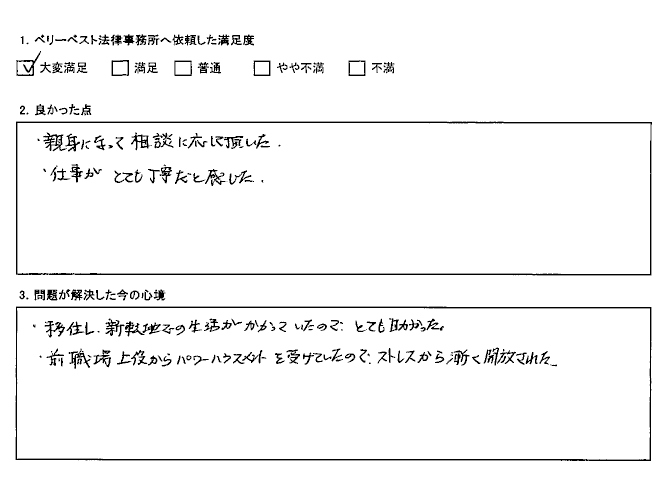 1. ベリーベスト法律事務所へ依頼した満足度
☑大変満足 □満足 □普通 □やや不満 □不満
2. 良かった点
・親身になって相談に応じ頂いた.
・仕事がとても丁寧だと感じた.
3. 問題が解決した今の心境
・移住し、新転地での生活がかかっていたので、とても助かった。
・前職場上役からパワーハラスメントを受けていたので、ストレスから漸く開放された.